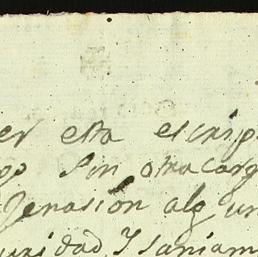 er esta escrip
go sin otra carg
genasion alg un
uridad Y saniam